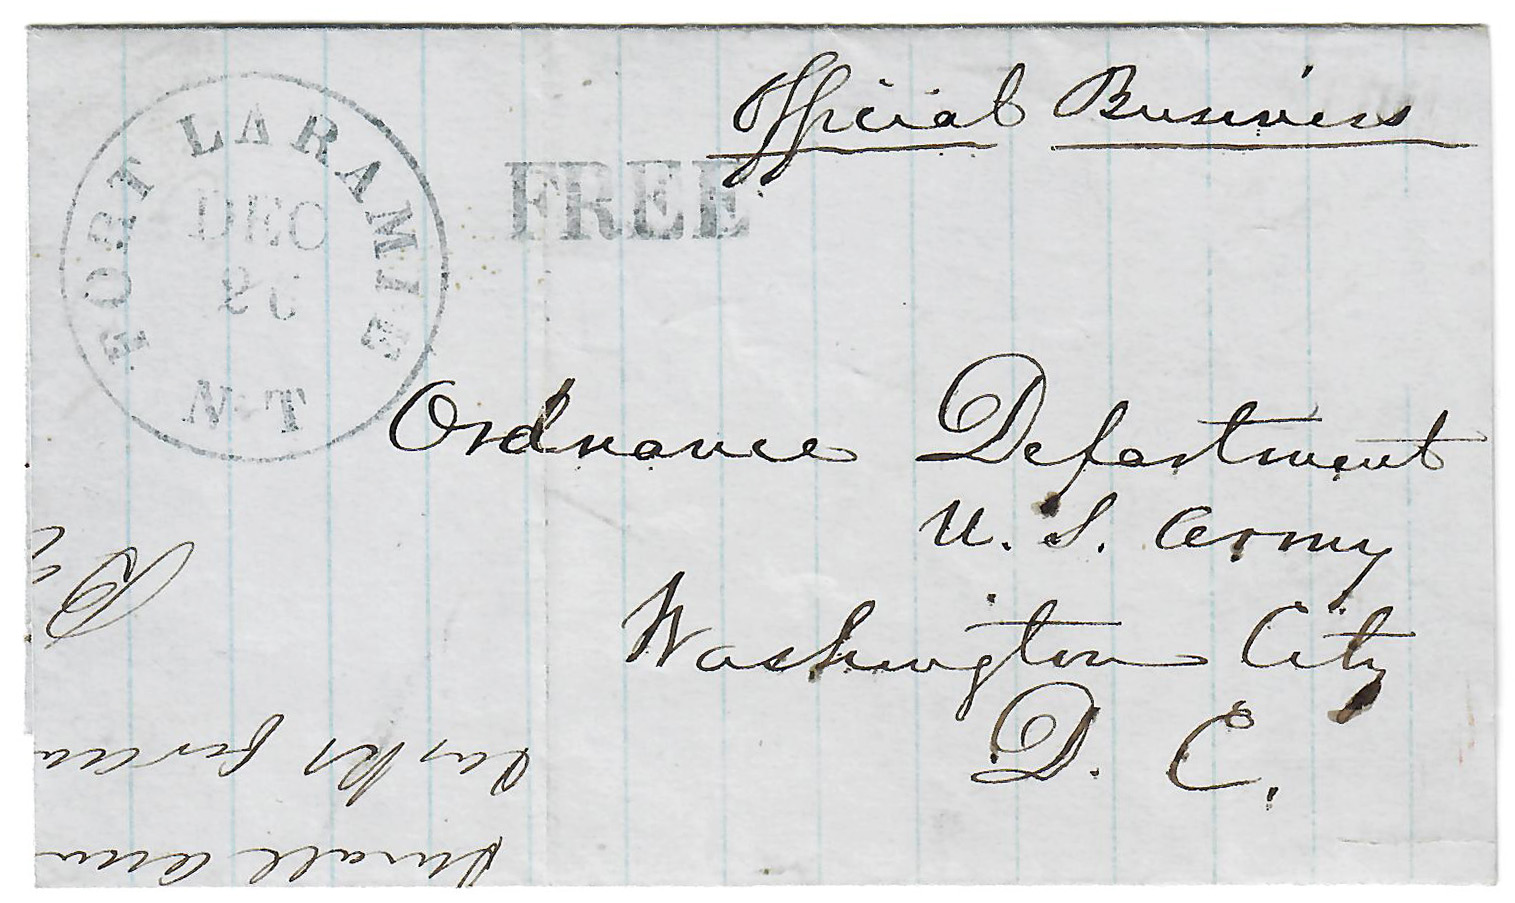 Official Business
FORT LARAMIE
DEC
26
N.T
FREE
Ordnance Department
U. S. Army
Washington City
D. C.
Small arm